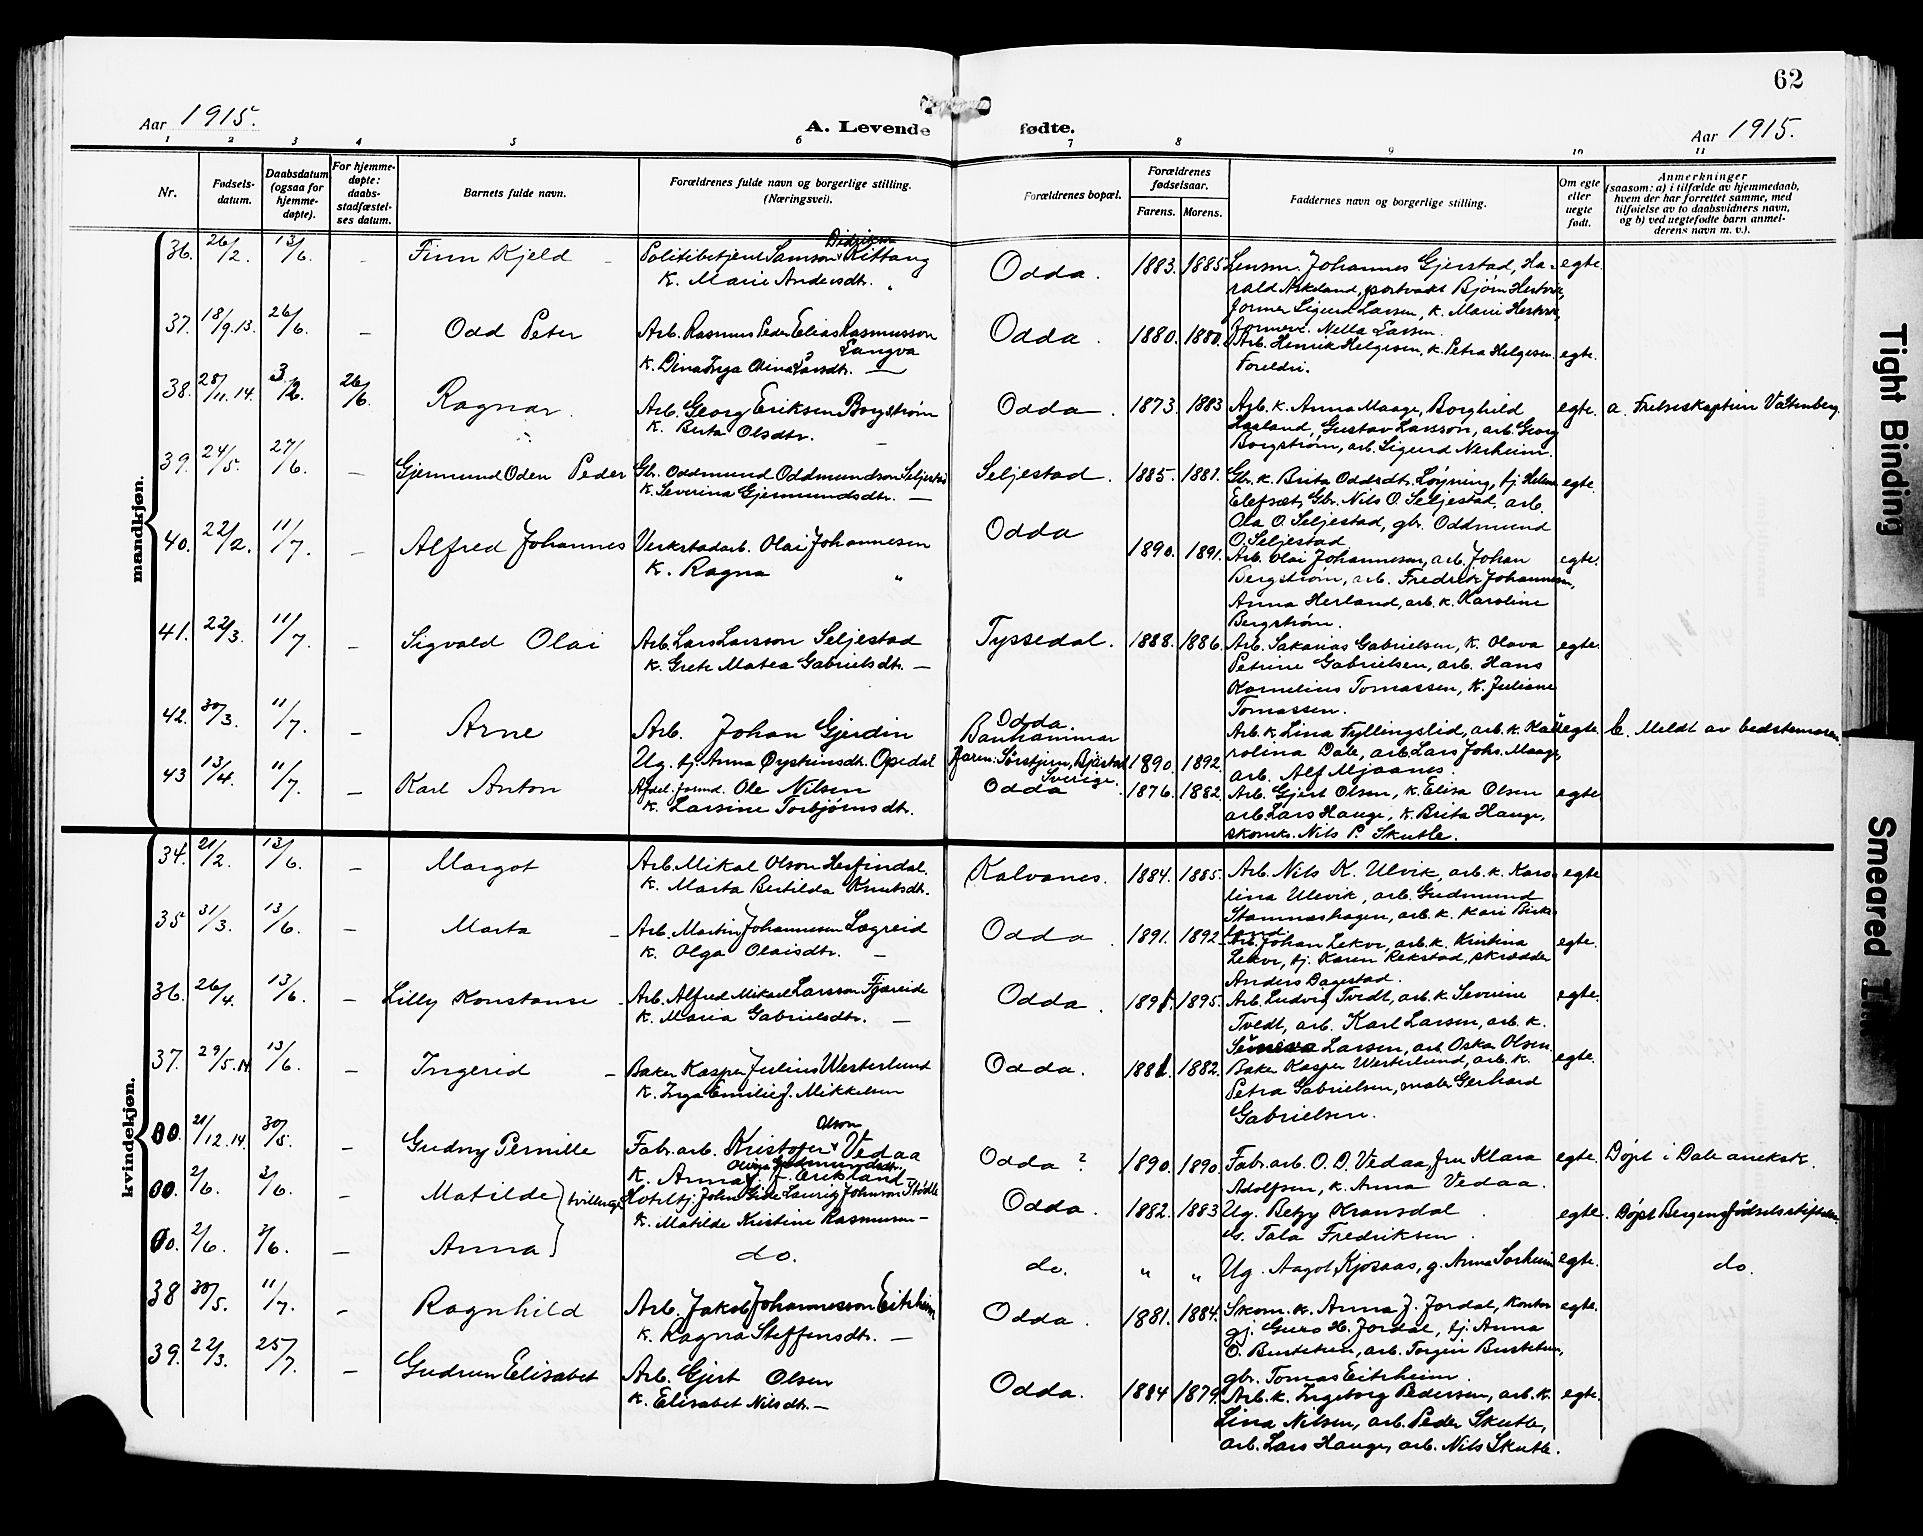 62
Aar 1915.
A. Levende fødte.
Aar 1915.
1 2 3 4 5 6 7 8 9 10 11
Nr.
Fødsels-
datum.
Daabsdatum
(ogsaa for
hjemme-
døpte).
For hjemme-
døpte:
daabs-
stadfæstel-
ses datum.
Barnets fulde navn.
Forældrenes fulde navn og borgerlige stilling.
(Næringsvei).
Forældrenes bopæl.
Forældrenes
fødselsaar.
Farens. Morens.
Faddernes navn og borgerlige stilling.
Om egte
eller
uegte
født.
Anmerkninger
(saasom: a) i tilfælde av hjemmedaab,
hvem der har forrettet samme, med
tilføielse av to daabsvidners navn,
og b) ved uegtefødte barn anmel-
derens navn m. v.).
mandkjøn.
36. 26/2. 13/6. - Finn Kjeld - Politibetjent Samson Didriksen Kittang
K. Marie Andersdtr. "
Odda. 1883. 1885. Lensm. Johannes Gjerstad, Ha- egte.
rald Askeland, portvakt Bjørn Hestvik,
former Sigurd Larsen, K. Marie Hestvik,
formerk. Nella Larsen.
37. 18/9.13. 26/6. - Odd Peter Arb. Rasmus Peder Elias Rasmusson
Langva
K. Dina Inga Olina Larsdtr. —
Odda. 1880. 1880. Arb. Henrik Helgesen, K. Petra Helgesen. egte.
Foreldri.
38. 28/11.14. 3/12. 26/6. Ragnar. Arb. Georg Eriksen Borgstrøm
K. Berta Olsdtr. —
Odda. 1873. 1883 Arb. k. Anna Maage, Borghild egte. a. Frelseskaptein Valtenberg.
Haaland, Gustav Larsson, arb. Georg
Borgstrøm, arb. Sigurd Nesheim.
39. 24/5. 27/6. - Gjermund Oden Peder Gbr. Oddmund Oddmundson Seljestad
K. Severina Gjermundsdtr. —
Seljestad. 1885. 1881. Gbr. k. Brita Oddsdtr. Løyning, tj. Helene egte.
Elefsæt, Gbr. Nils O. Seljestad, arb.
Ola O. Seljestad, gbr. Oddmund
O. Seljestad
40. 22/2. 11/7. - Alfred Johannes Verkstadarb. Olai Johannesen
K. Ragna "
Odda 1890. 1891. Arb. Olai Johannesen, arb. Johan egte.
Bergstrøm, arb. Fredrik Johannesen,
Anna Herland, arb. k. Karoline
Bergstrøm.
41. 22/3. 11/7. - Sigvald Olai Arb. Lars Larsson Seljestad
K. Grete Matea Gabrielsdtr. —
Tyssedal. 1888. 1886. Arb. Sakarias Gabrielsen, K. Olava egte.
Petrine Gabrielsen, arb. Hans
Kornelius Tomassen, K. Juliane
Tomassen.
42. 30/3. 11/7. - Arne Arb. Johan Gjerdin
Ug. tj. Anna Øystinsdtr. Opedal
Odda.
Banhammar
Faren: Sörstjern, Björstad
Sverige.
1890. 1892. Arb. k. Lina Fyllingslid, arb. k. Ka- egte. b. Meldt av bedstemoren.
rolina Dale, arb. Lars Johs. Maage,
arb. Alf Mjaanes.
43 13/4. 11/7. - Karl Anton Afdel. formd. Ole Nilsen
K. Larsine Torbjørnsdtr.
Odda 1876. 1882. Arb. Gjert Olsen, K. Elisa Olsen egte.
arb. Lars Hauge, K. Brita Hauge,
skomk. Nils P. Skutle.
kvindekjøn.
34. 21/2. 13/6. - Margot Arb. Mikal Olson Herfindal.
K. Marta Bertilda Knutsdtr.
Kalvanes. 1884. 1885. Arb. Nils K. Ulvik, arb. k. Karo- egte
lina Ulevik, arb. Gudmund
Stamnashagen, arb. k. Kari Birke-
land.
35 31/3. 13/6. - Marta - Arb. Martin Johannesen Lægreid
K. Olga Olaisdtr. —
Odda. 1891. 1892. Arb. Johan Lekve, arb. k. Kristina egte.
Lekve, tj. Karen Rekstad, skrædder
Anders Dagestad.
36. 26/4. 13/6. - Lilly Konstanse - Arb. Alfred Mikael Larsson Fjæreide
K. Maria Gabrielsdtr. —
Odda. 1895. Arb. Ludvig Tvedt, arb. k. Severine egte.
Tvedt, arb. Karl Larsen, arb. k.
Larsen, arb. Oskar Olsen.
37. 29/5.14. 13/6. - Ingerid - Baker Kasper Julius Westerlund
K. Inga Emilie J. Mikkelsen
Odda. 1881. 1882. Baker Kasper Westerlund, arb. k. egte.
Petra Gabrielsen, maler Gerhard
Gabrielsen.
00. 21/12.14. 30/5. - Gudny Pernille Fabr. arb. Kristofer Olson Vedaa
K. Anna Olivia Gudmundsdtr. f. Eriksland —
Odda? 1890. 1890. Fabr. arb. O. D. Vedaa, fru Klara egte. Døpt i Dale aneksk.
Adolfsen, K. Anna Vedaa.
00. 2/6. 3/6. - Matilde } tvillinger Hoteltj. John Gide Lauritz Johnson Stødle
K. Matilde Kristine Rasmussen —
Odda. 1882. 1883 Ug. Betzy Kransdal. egte. Døpt Bergens fødselsstiftelse.
Ug. Tala Fredriksen.
00. 2/6. 3/6. - Anna } do.
do. " " Ug. Aagot Kjosaas, g. Anna Sørheim egte. do.
38 30/5. 11/7. - Ragnhild Arb. Jakob Johannesson Eitrheim
K. Ragna Steffensdtr. —
Odda. 1881. 1884. Skom. k. Anna J. Jordal, Kontor egte.
gj. Guro H. Jordal, tj. Anna
O. Bustetun, arb. Torgeir Bustetun,
gbr. Tomas Eitrheim.
39. 22/3. 25/7. - Gudrun Elisabet Arb. Gjert Olsen
K. Elisabet Nilsdtr. —
Odda. 1884 1879. Arb. k. Ingeborg Pedersen, arb. k. egte.
Lina Nilsen, arb. Peder Skutle,
arb. Lars Hauge, arb. Nils Skutle.
Tight Binding
Smeared